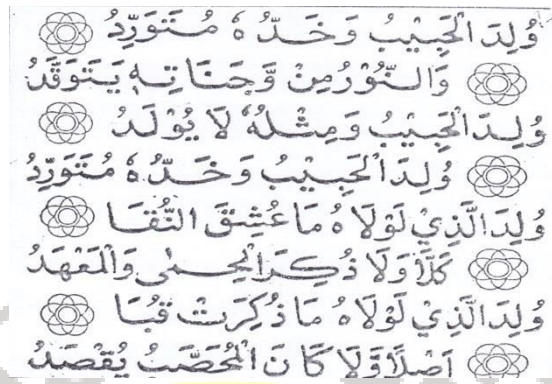 وُلِدَ الْحَبِيْبُ وَخَدُّهٗ مُتَوَرِّدُ
وَالنُّوْرُمِنْ وَّجَنَاتِهٖ يَتَوَقَّدُ
وُلِدَ الْحَبِيْبُ وَمِثْلُهٗ لَا يُوْلَدُ
وُلِدَ الْحَبِيْبُ وَخَدُّهٗ مُتَوَرِّدُ
وُلِدَ الَّذِيْ لَوْلَاهُ مَا عُشِقَ التُّقَا
كَلَّا وَلَا ذُكِرَ الْحِمٰى وَالْمَعْهَدُ
وُلِدَ الَّذِيْ لَوْلَاهُ مَا ذُكِرَتْ قُبَا
اَصْلًا وَّلَا كَانَ الْمُحَصَّبُ يُقْصَدُ